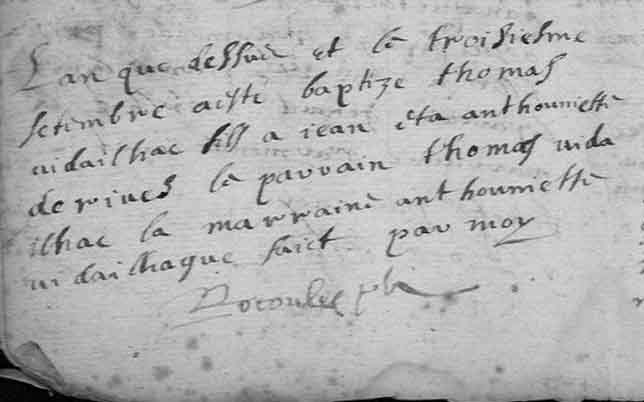 Lan que dessus et le troisiesme
setembre a este baptize thomas
vidailhac fils a iean et a anthouniette
de rives le parrain thomas vida
ilhac la marraine anthouniette
vidailhaque faict par moy